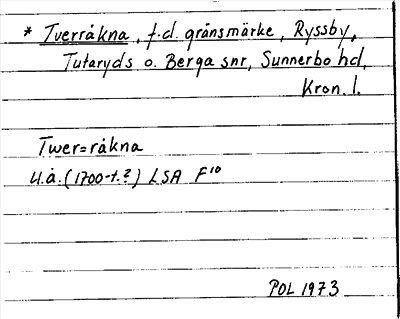 * Tverråkna, f.d. gränsmärke, Ryssby,
Tutaryds o. Berga snr, Sunnerbo hd,
Kron. l.
Twer=råkna
U.å. (1700-t.?) LSA F10
POL 1973